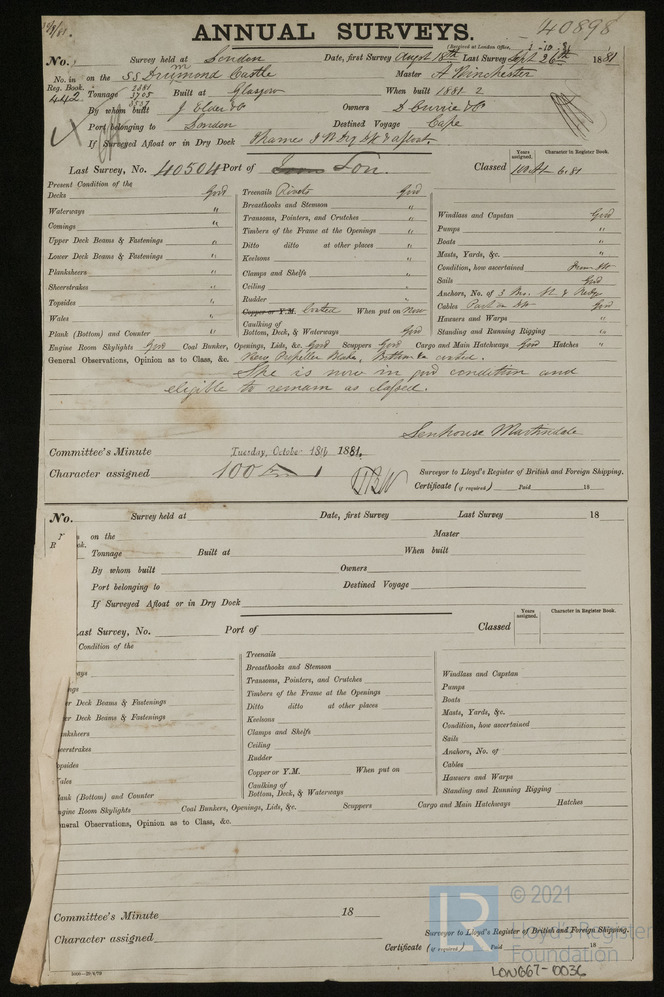 ANNUAL SURVEYS.
40898
(Received at London Office,
No. Survey held at London Date, first Survey Augst 18th Last Survey Sept 26th 1881
No. in Reg. Book. 442 on the SS Drummond Castle Master A Winchester
Tonnage 2381 3705 3537 Built at Glasgow When built 1881 2
By whom built J Elder & Co Owners D Currie & Co
Port belonging to London Destined Voyage Cape
If Surveyed Afloat or in Dry Dock Thames I W Dry Dk & afloat.
Last Survey, No. 40504 Port of Lon. Classed 100 A1 6.81
Years assigned. Character in Register Book.
Present Condition of the
Decks Good
Waterways "
Comings "
Upper Deck Beams & Fastenings "
Lower Deck Beams & Fastenings "
Planksheers "
Sheerstrakes "
Topsides "
Wales "
Plank (Bottom) and Counter "
Treenails Rivets Good
Breasthooks and Stemson "
Transoms, Pointers, and Crutches "
Timbers of the Frame at the Openings "
Ditto ditto at other places "
Keelsons "
Clamps and Shelfs "
Ceiling "
Rudder "
Copper or Y.M. Coated When put on Now
Caulking of Bottom, Deck, & Waterways Good
Windlass and Capstan Good
Pumps "
Boats "
Masts, Yards, &c. "
Condition, how ascertained From Dk
Sails Good
Anchors, No. of 3 Bo. St. & Kedge
Cables Good
Hawsers and Warps "
Standing and Running Rigging "
Engine Room Skylights Good Coal Bunkers, Openings, Lids, &c. Good Scuppers Good Cargo and Main Hatchways Good Hatches "
General Observations, Opinion as to Class, &c. New Propeller Blade, Bottom coated.
She is now in good condition and
eligible to remain as classed.
Senhouse Martindale
Committee's Minute Tuesday, October 18th 1881.
Character assigned 100 A 1
Surveyor to Lloyd's Register of British and Foreign Shipping.
Certificate (if required) Paid 18
No. Survey held at Date, first Survey Last Survey 18
on the Master
Tonnage Built at When built
By whom built Owners
Port belonging to Destined Voyage
If Surveyed Afloat or in Dry Dock
Last Survey, No. Port of Classed
Years assigned. Character in Register Book.
Condition of the
er Deck Beams & Fastenings
er Deck Beams & Fastenings
anksheers
eerstrakes
opsides
ales
lank (Bottom) and Counter
Treenails
Breasthooks and Stemson
Transoms, Pointers, and Crutches
Timbers of the Frame at the Openings
Ditto ditto at other places
Keelsons
Clamps and Shelfs
Ceiling
Rudder
Copper or Y.M. When put on
Caulking of Bottom, Deck, & Waterways
Windlass and Capstan
Pumps
Boats
Masts, Yards, &c.
Condition, how ascertained
Sails
Anchors, No. of
Cables
Hawsers and Warps
Standing and Running Rigging
Engine Room Skylights Coal Bunkers, Openings, Lids, &c. Scuppers Cargo and Main Hatchways Hatches
eneral Observations, Opinion as to Class, &c.
Committee's Minute 18
Character assigned
Surveyor to Lloyd's Register of British and Foreign Shipping.
Certificate (if required) Paid 18
LR © 2021
Lloyd's Register
Foundation
LON667-0036